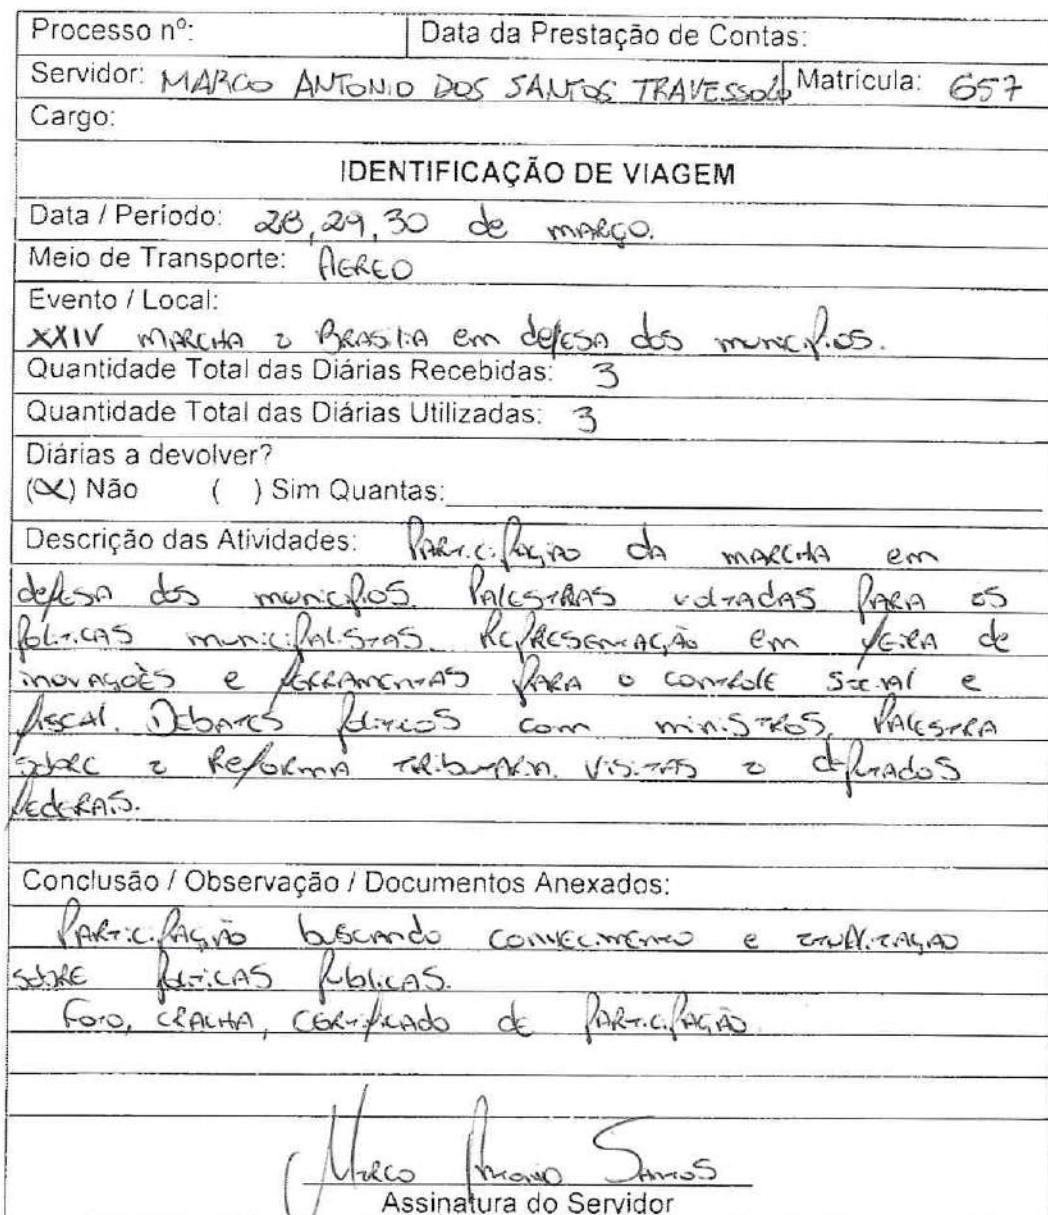 Processo nº: Data da Prestação de Contas:
Servidor: MARCO ANTONIO DOS SANTOS TRAVESSOLO Matrícula: 657
Cargo:
IDENTIFICAÇÃO DE VIAGEM
Data / Período: 28, 29, 30 de MARÇO.
Meio de Transporte: AEREO
Evento / Local:
XXIV MARCHA a BRASILIA em defesa dos municipios.
Quantidade Total das Diárias Recebidas: 3
Quantidade Total das Diárias Utilizadas: 3
Diárias a devolver?
(X) Não ( ) Sim Quantas:
Descrição das Atividades: PARTICIPAÇÃO da MARCHA em
defesa dos municipios. PALESTRAS voltadas PARA as
politicas municipalistas. REPRESENTAÇÃO em feira de
inovações e ferramentas PARA o controle social e
fiscal. Debates politicos com ministros, PALESTRA
sobre a Reforma tributaria. visitas a deputados
federais.
Conclusão / Observação / Documentos Anexados:
PARTICIPAÇÃO buscando conhecimento e atualização
sobre politicas publicas.
Foto, CRACHA, certificado de PARTICIPAÇÃO.
Marco Antonio Santos
Assinatura do Servidor